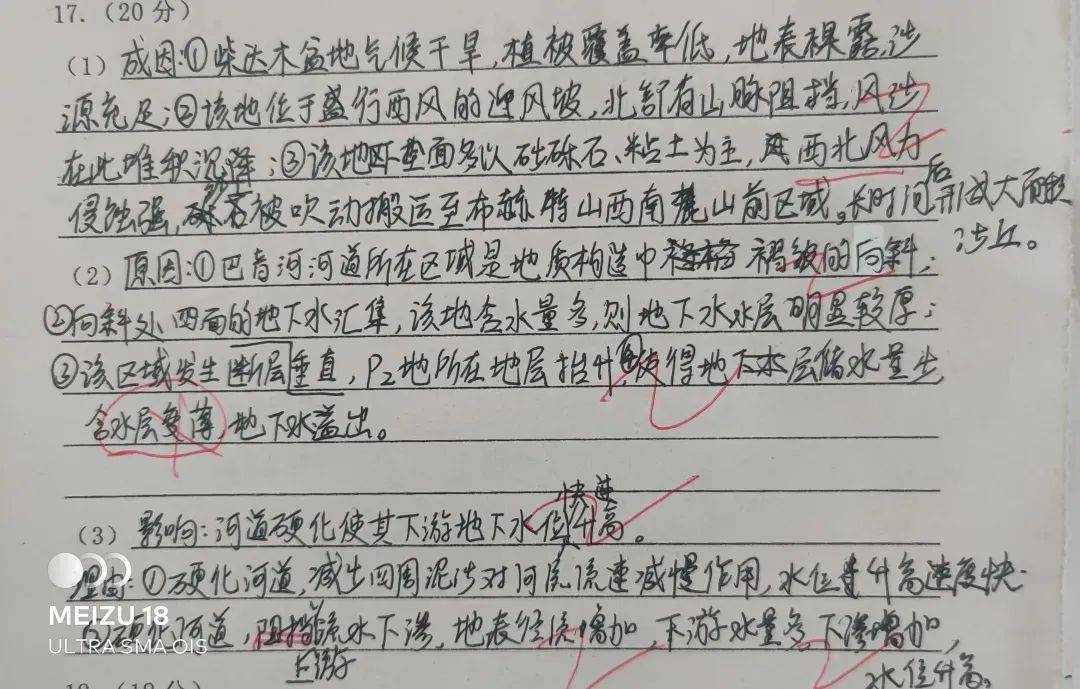 17.（20分）
(1) 成因:①柴达木盆地气候干旱,植被覆盖率低,地表裸露,沙
源充足;②该地位于盛行西风的迎风坡,北部有山脉阻挡,风沙
在此堆积沉降;③该地区地面多以砾石、粘土为主,西北风力
侵蚀强,被吹动搬运至布赫特山西南麓山前区域。长时间后形成大面积
沙丘。
(2) 原因:①巴音河河道所在区域是地质构造中褶皱的向斜;
②向斜处四面的地下水汇集,该地含水量多,则地下水水层明显较厚;
③该区域发生断层垂直,P₂地所在地层抬升,④使得地下水层储水量少,
含水层变薄,地下水溢出。
(3) 影响:河道硬化使其下游地下水位快速升高。
理由:①硬化河道,减少四周泥沙对河流流速减慢作用,水位升高速度快.
河道,阻挡上游流水下渗,地表径流增加,下游水量多下渗增加,
水位升高。
MEIZU 18
ULTRA SMA OIS